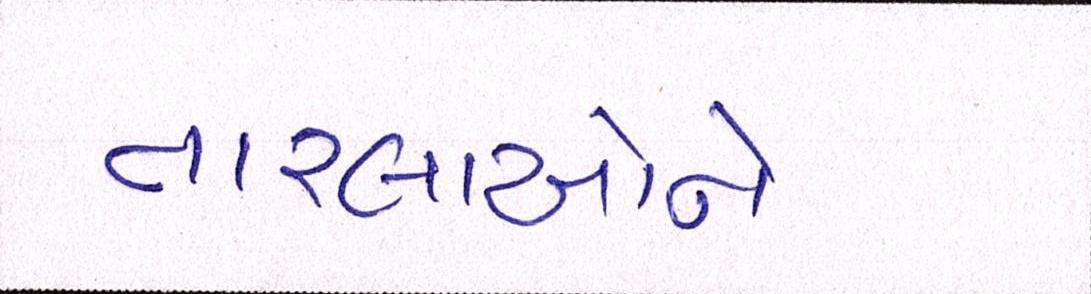 તારલાઓને